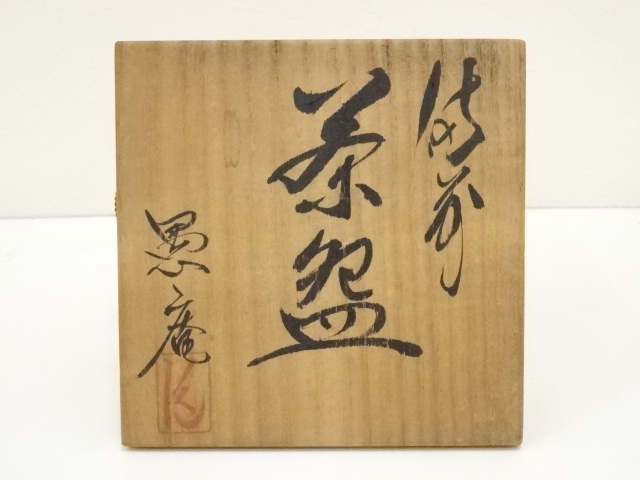 備前
茶盌
愚庵